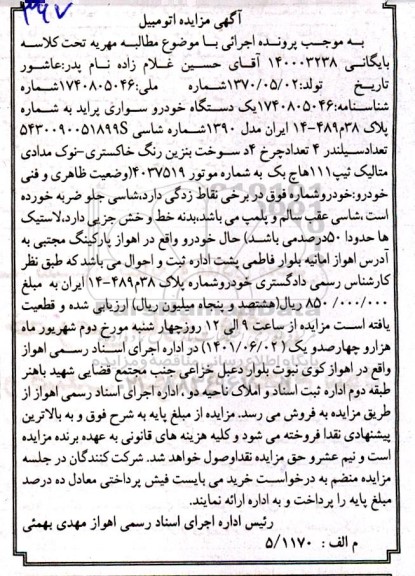 ۳۹۷
آگهی مزایده اتومبیل
به موجب پرونده اجرائی با موضوع مطالبه مهریه تحت کلاسه
بایگانی ۱۴۰۰۰۳۲۳۸ آقای حسین غلام زاده نام پدر:عاشور
تاریخ تولد:۱۳۷۰/۰۵/۰۲شماره ملی:۱۷۴۰۸۰۵۰۴۶شماره
شناسنامه:۱۷۴۰۸۰۵۰۴۶یک دستگاه خودرو سواری پراید به شماره
پلاک ۳۸م۴۸۹-۱۴ ایران مدل ۱۳۹۰شماره شاسی ۵۴۳۰۰۹۰۰۵۱۸۹۹S
تعدادسیلندر ۴ تعدادچرخ ۴د سوخت بنزین رنگ خاکستری-نوک مدادی
متالیک تیپ۱۱۱هاچ بک به شماره موتور ۴۰۳۷۵۱۹(وضعیت ظاهری و فنی
خودرو:خودروشماره فوق در برخی نقاط زدگی دارد،شاسی جلو ضربه خورده
است،شاسی عقب سالم و پلمپ می باشد،بدنه خط و خش جزیی دارد،لاستیک
ها حدودا ۵۰درصدمی باشد) حال خودرو واقع در اهواز پارکینگ مجتبی به
آدرس اهواز امانیه بلوار فاطمی پشت اداره ثبت و احوال می باشد که طبق نظر
کارشناس رسمی دادگستری خودروشماره پلاک ۳۸م۴۸۹-۱۴ ایران به مبلغ
۸۵۰/۰۰۰/۰۰۰ ریال(هشتصد و پنجاه میلیون ریال) ارزیابی شده و قطعیت
یافته است مزایده از ساعت ۹ الی ۱۲ روزچهار شنبه مورخ دوم شهریور ماه
هزارو چهارصدو یک (۱۴۰۱/۰۶/۰۲) در اداره اجرای اسناد رسمی اهواز
واقع در اهواز کوی نبوت بلوار دعبل خزاعی جنب مجتمع قضایی شهید باهنر
طبقه دوم اداره ثبت اسناد و املاک ناحیه دو ، اداره اجرای اسناد رسمی اهواز از
طریق مزایده به فروش می رسد. مزایده از مبلغ پایه به شرح فوق و به بالاترین
پیشنهادی نقدا فروخته می شود و کلیه هزینه های قانونی به عهده برنده مزایده
است و نیم عشر و حق مزایده نقداوصول خواهد شد. شرکت کنندگان در جلسه
مزایده منضم به درخواست خرید می بایست فیش پرداختی معادل ده درصد
مبلغ پایه را پرداخت و به اداره ارائه نمایند.
رئیس اداره اجرای اسناد رسمی اهواز مهدی بهمئی
م الف : ۵/۱۱۷۰